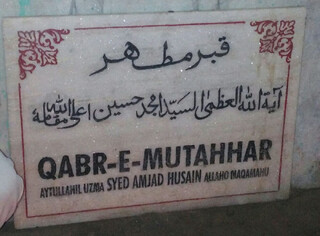 قبر مطهر
آية الله العظمیٰ السيد امجد حسين اعلی الله مقامه
QABR-E-MUTAHHAR
AYTULLAHIL UZMA SYED AMJAD HUSAIN ALLAHO MAQAMAHU